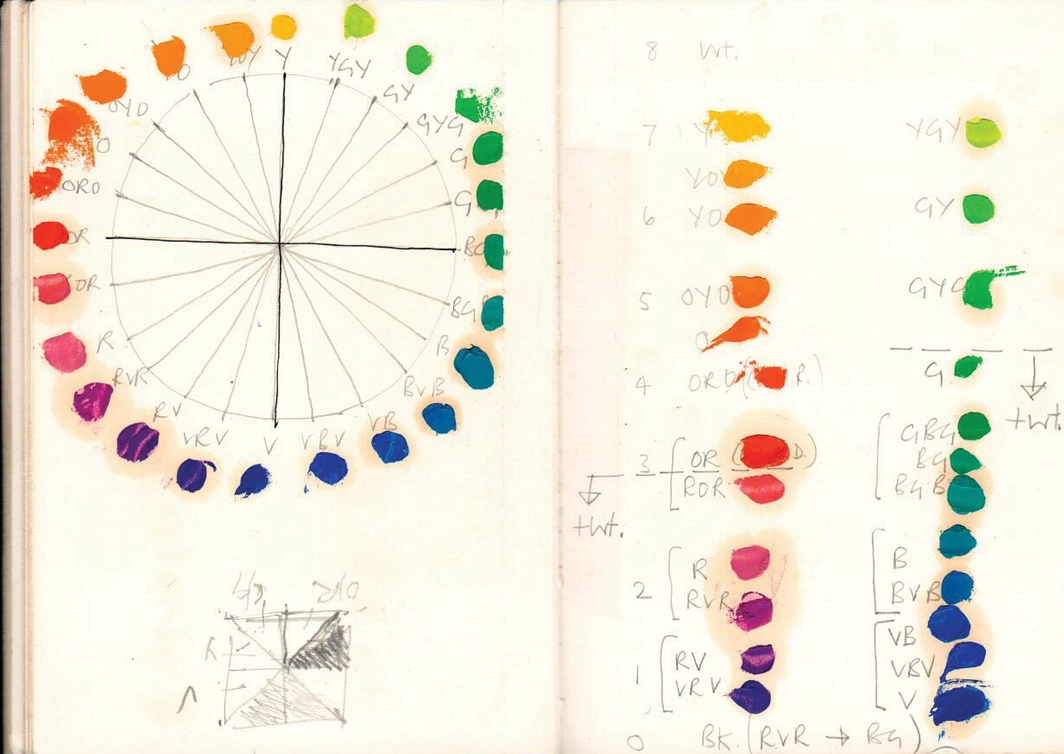 Y
YGY
GY
GYG
G
BG
B
BVB
VB
VBV
V
VRV
RV
RVR
R
OR
OR
ORO
O
OYO
8 Wt.
7 Y YGY
YOY
6 YO GY
5 OYO GYG
O
4 G
+Wt.
3 OR GBG
ROR BG
+Wt. BGB
2 R B
RVR BVB
VB
1 RV VBV
VRV V
0 BK. (RVR → BG)